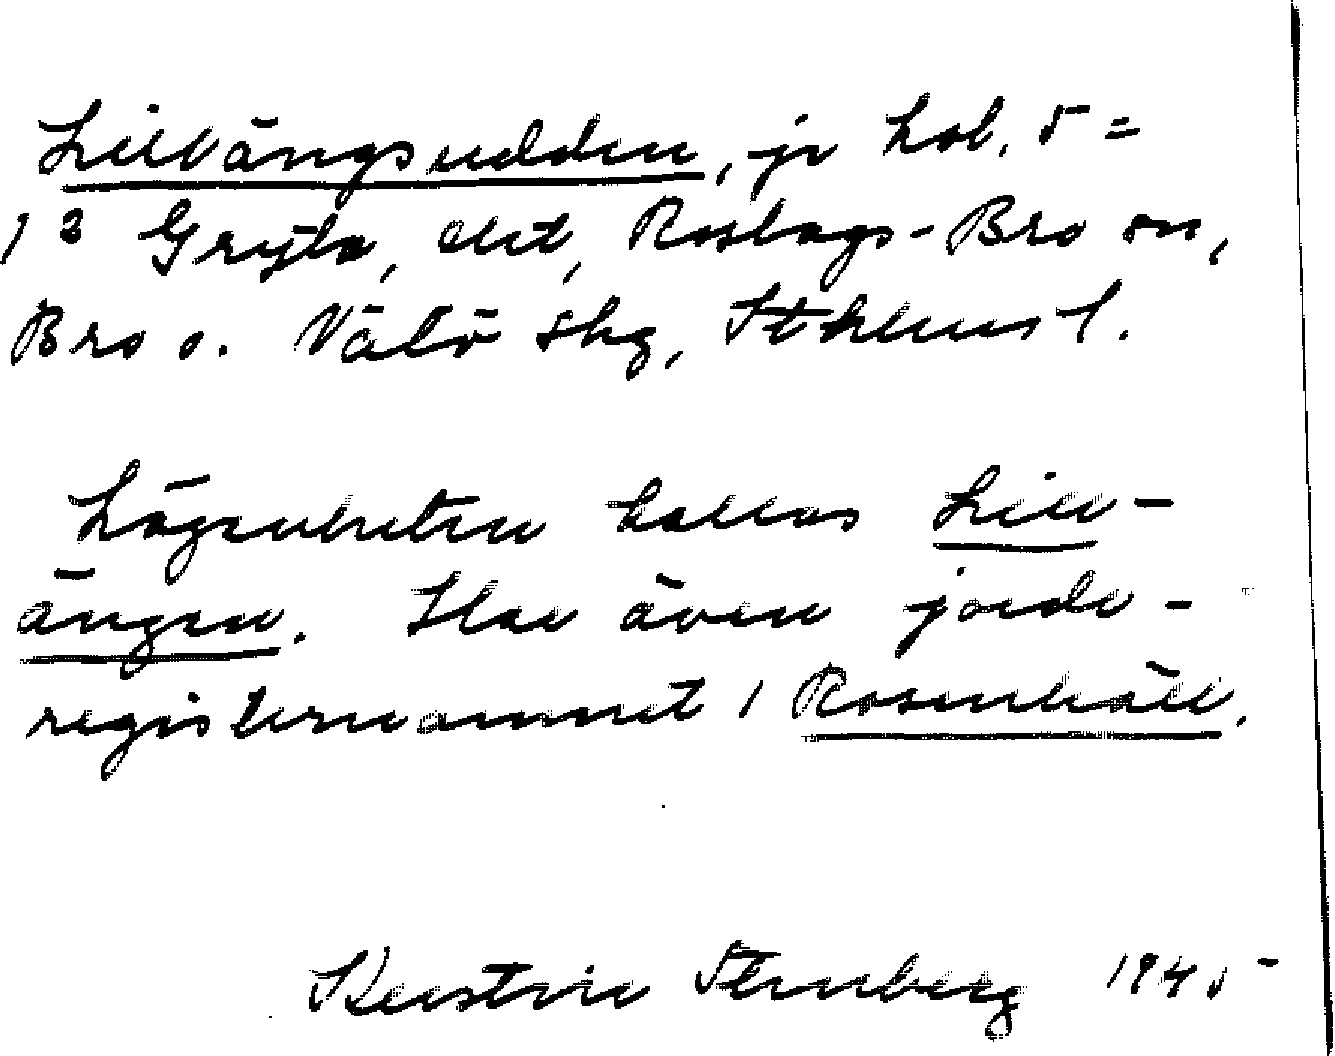 Lillängsudden, jr hob. 5 =
1² Gryta, Roslags-Bro sn,
Bro s. Välö skg, Sthlms l.
Lägenheten kallas Lill-
ängen. Har även jorde-
registernamnet 1 Rosenhäll.
Kerstin Stenberg 1945